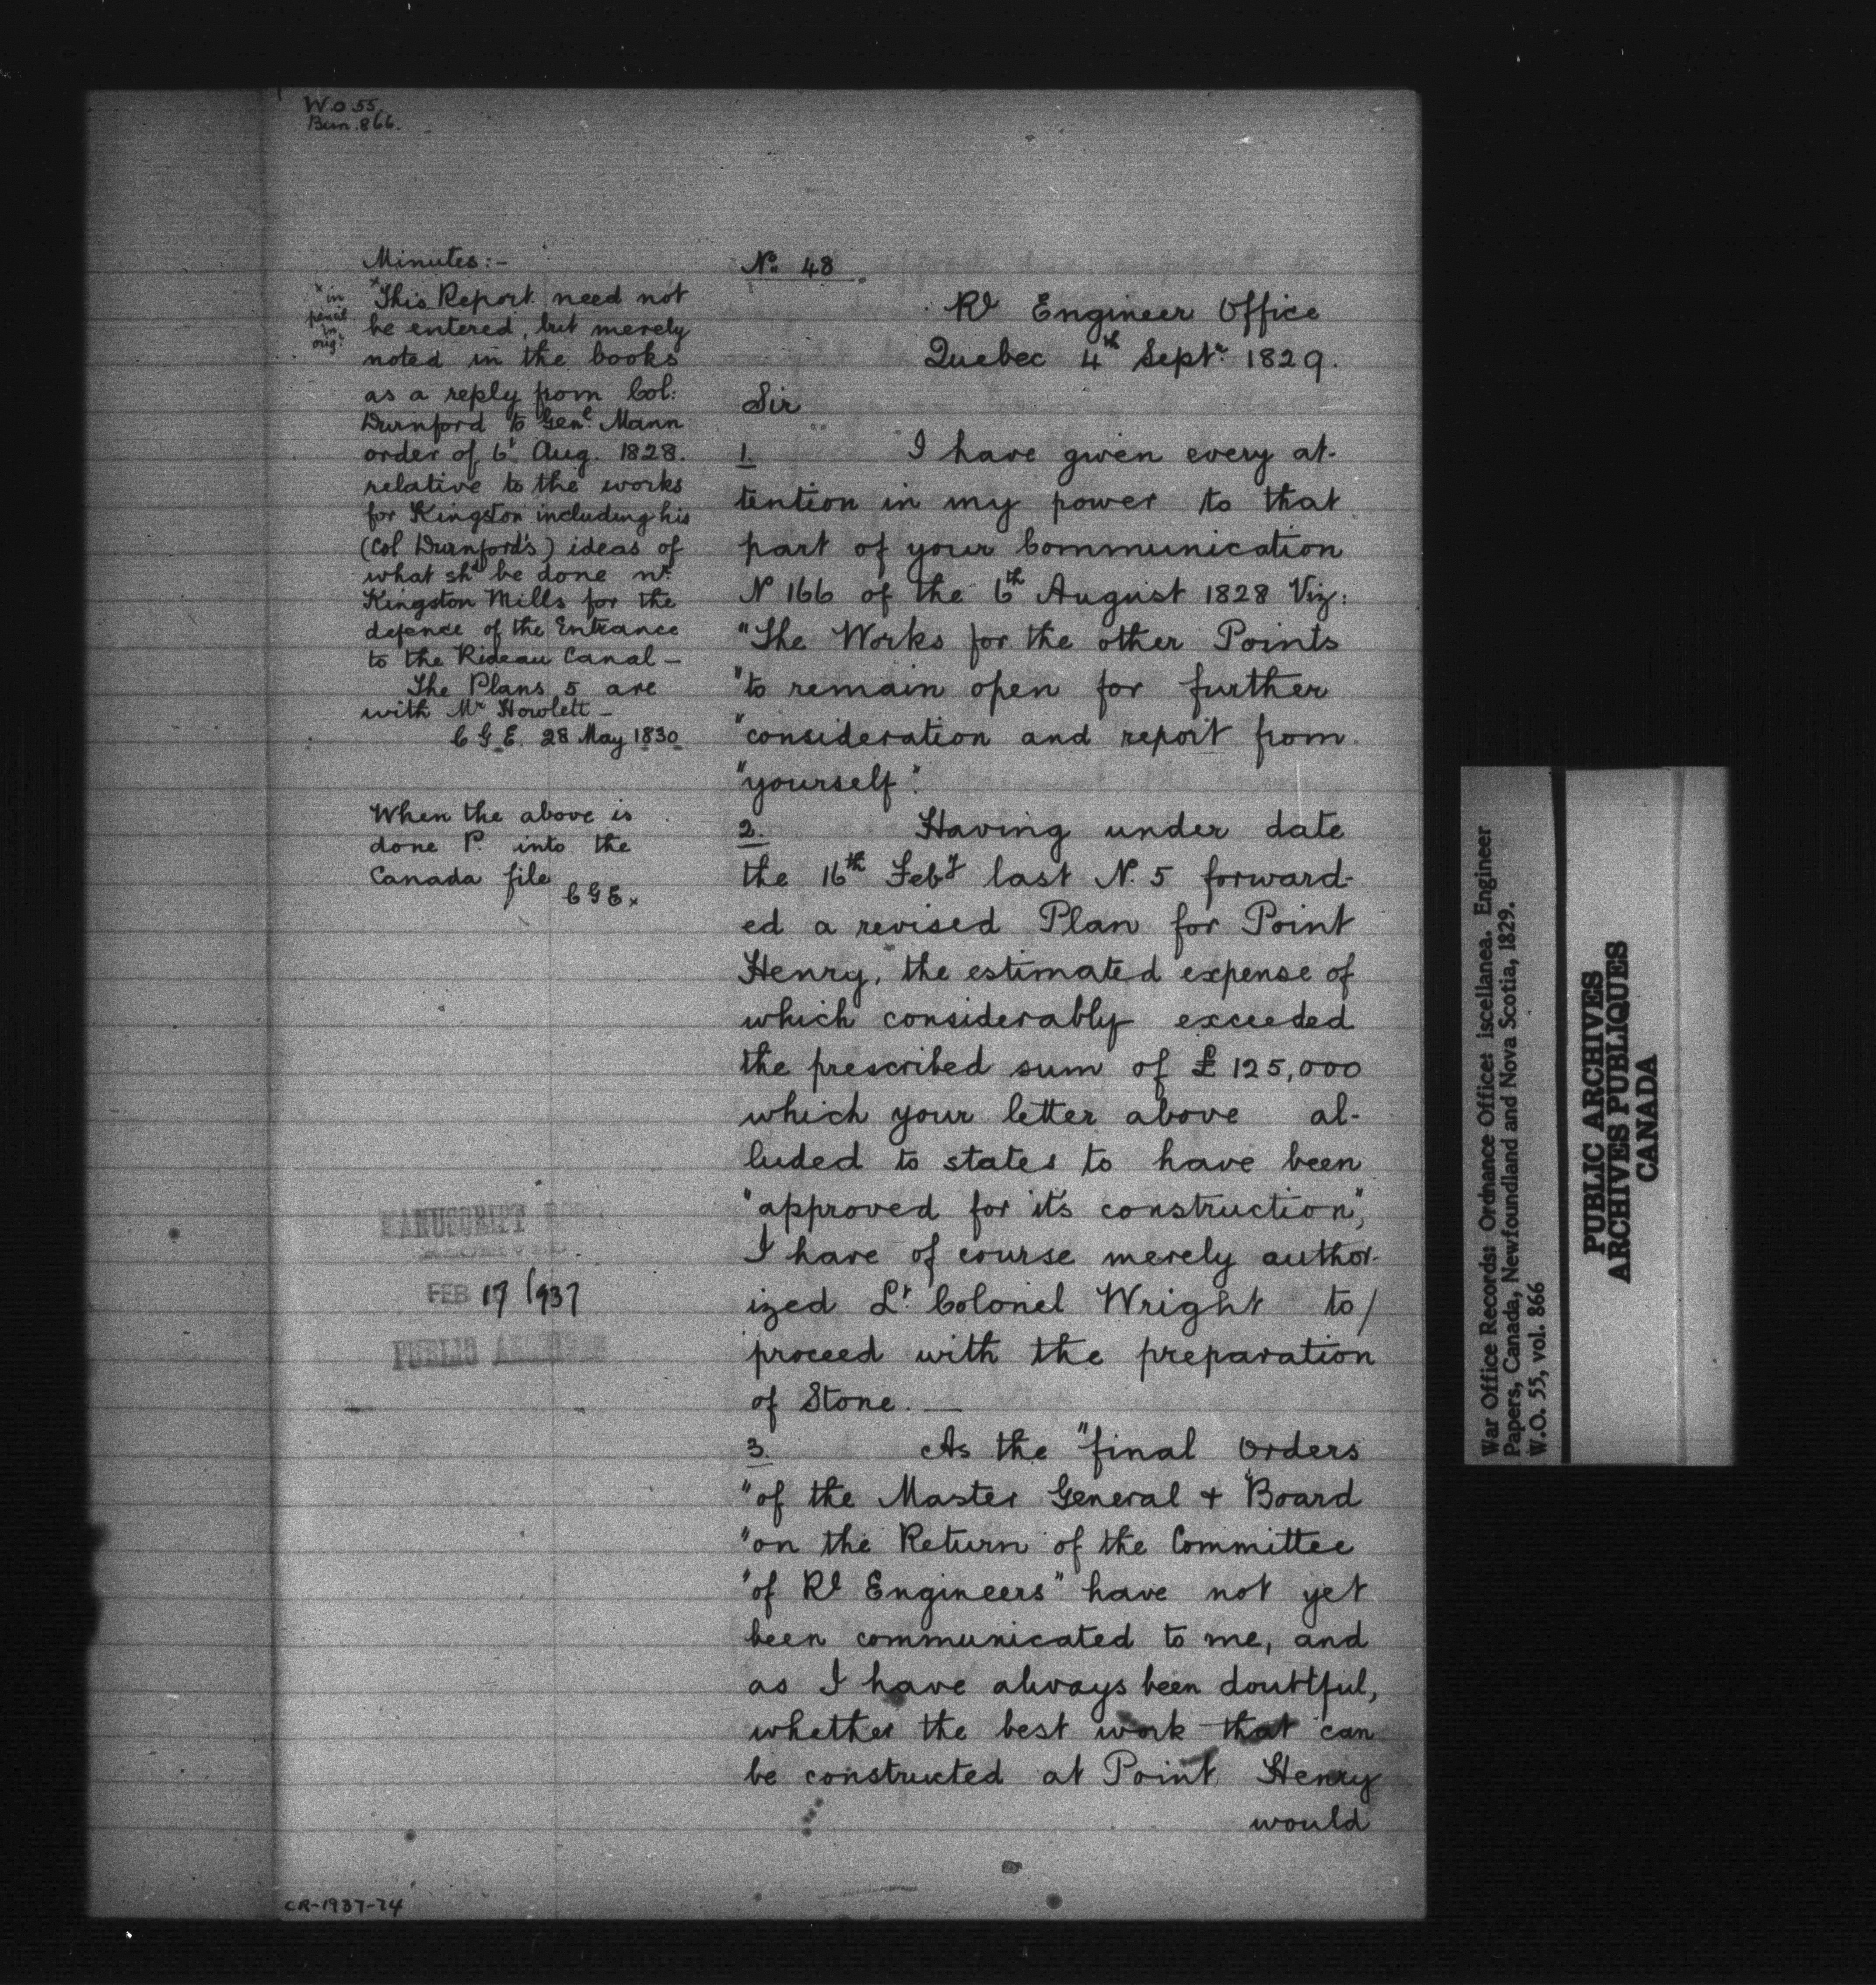 W.O 55.
Bun. 866.
Minutes:-
x in
pencil
in
orig.
xThis Report need not
be entered, but merely
noted in the books
as a reply from Col:
Durnford to Genl. Mann
order of 6t. Aug. 1828.
relative to the works
for Kingston including his
(Col Durnford's) ideas of
what shd be done nr.
Kingston Mills for the
defence of the Entrance
to the Rideau Canal -
The Plans 5 are
with Mr Howlett -
C G E. 28 May 1830
When the above is
done P. into the
Canada file
C G E x
MANUSCRIPT
FEB 17 1937
PUBLIC ARCHIVES
CR-1937-24
No. 48.
Rl Engineer Office
Quebec 4th Septr. 1829.
Sir
1. I have given every at-
tention in my power to that
part of your Communication
N 166 of the 6th August 1828 Viz:
"The Works for the other Points
"to remain open for further
"consideration and report from
"yourself".
2. Having under date
the 16th Feby last N. 5 forward-
ed a revised Plan for Point
Henry, the estimated expense of
which considerably exceeded
the prescribed sum of £125,000
which your letter above al-
luded to states to have been
"approved for its construction",
I have of course merely author-
ized Lt. Colonel Wright to/
proceed with the preparation
of Stone. —
3. As the "final Orders
"of the Master General & Board
"on the Return of the Committee
"of Rl Engineers" have not yet
been communicated to me, and
as I have always been doubtful,
whether the best work that can
be constructed at Point Henry
would
War Office Records: Ordnance Office: iscellanea. Engineer
Papers, Canada, Newfoundland and Nova Scotia, 1829.
W.O. 55, vol. 866
PUBLIC ARCHIVES
ARCHIVES PUBLIQUES
CANADA